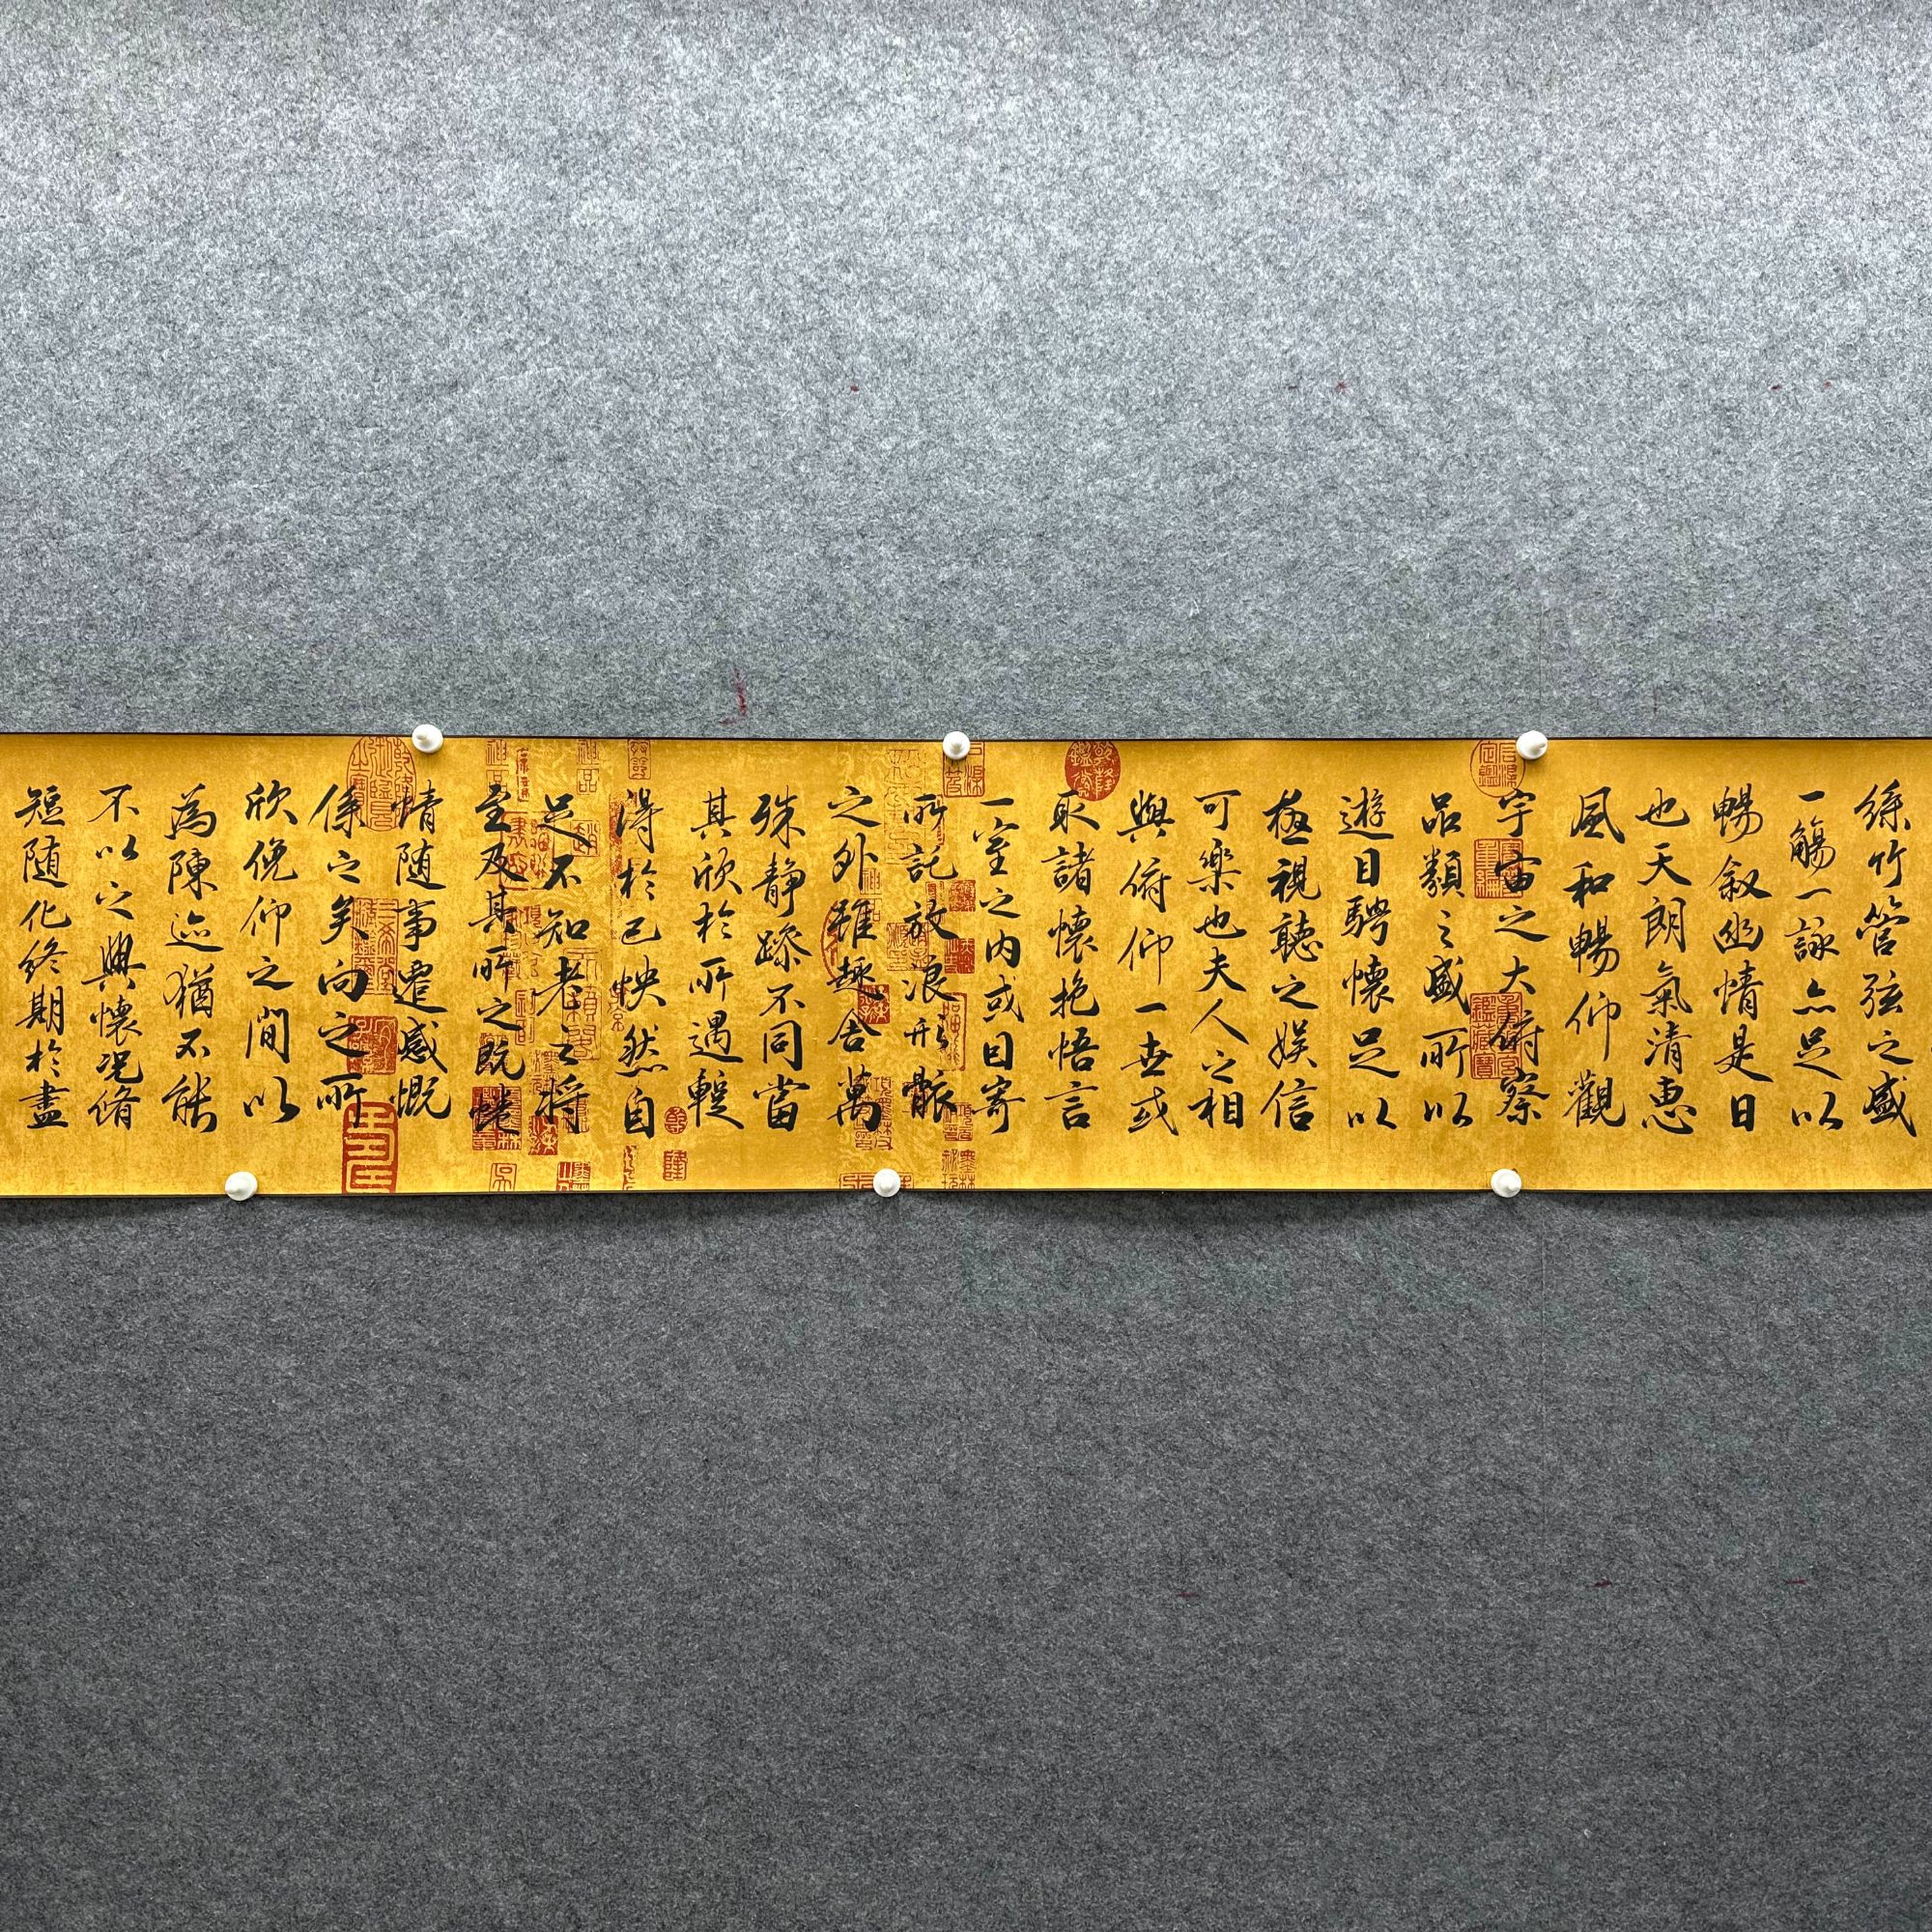 絲竹管弦之盛
一觴一詠亦足以
暢叙幽情是日
也天朗氣清惠
風和暢仰觀
宇宙之大俯察
品類之盛所以
遊目騁懷足以
極視聽之娛信
可樂也夫人之相
與俯仰一世或
取諸懷抱悟言
一室之内或因寄
所託放浪形骸
之外雖趣舍萬
殊静躁不同當
其欣於所遇蹔
得於己怏然自
足不知老之將
至及其所之既惓
情随事遷感慨
係之矣向之所
欣俛仰之間以
為陳迹猶不能
不以之興懷況脩
短随化終期於盡